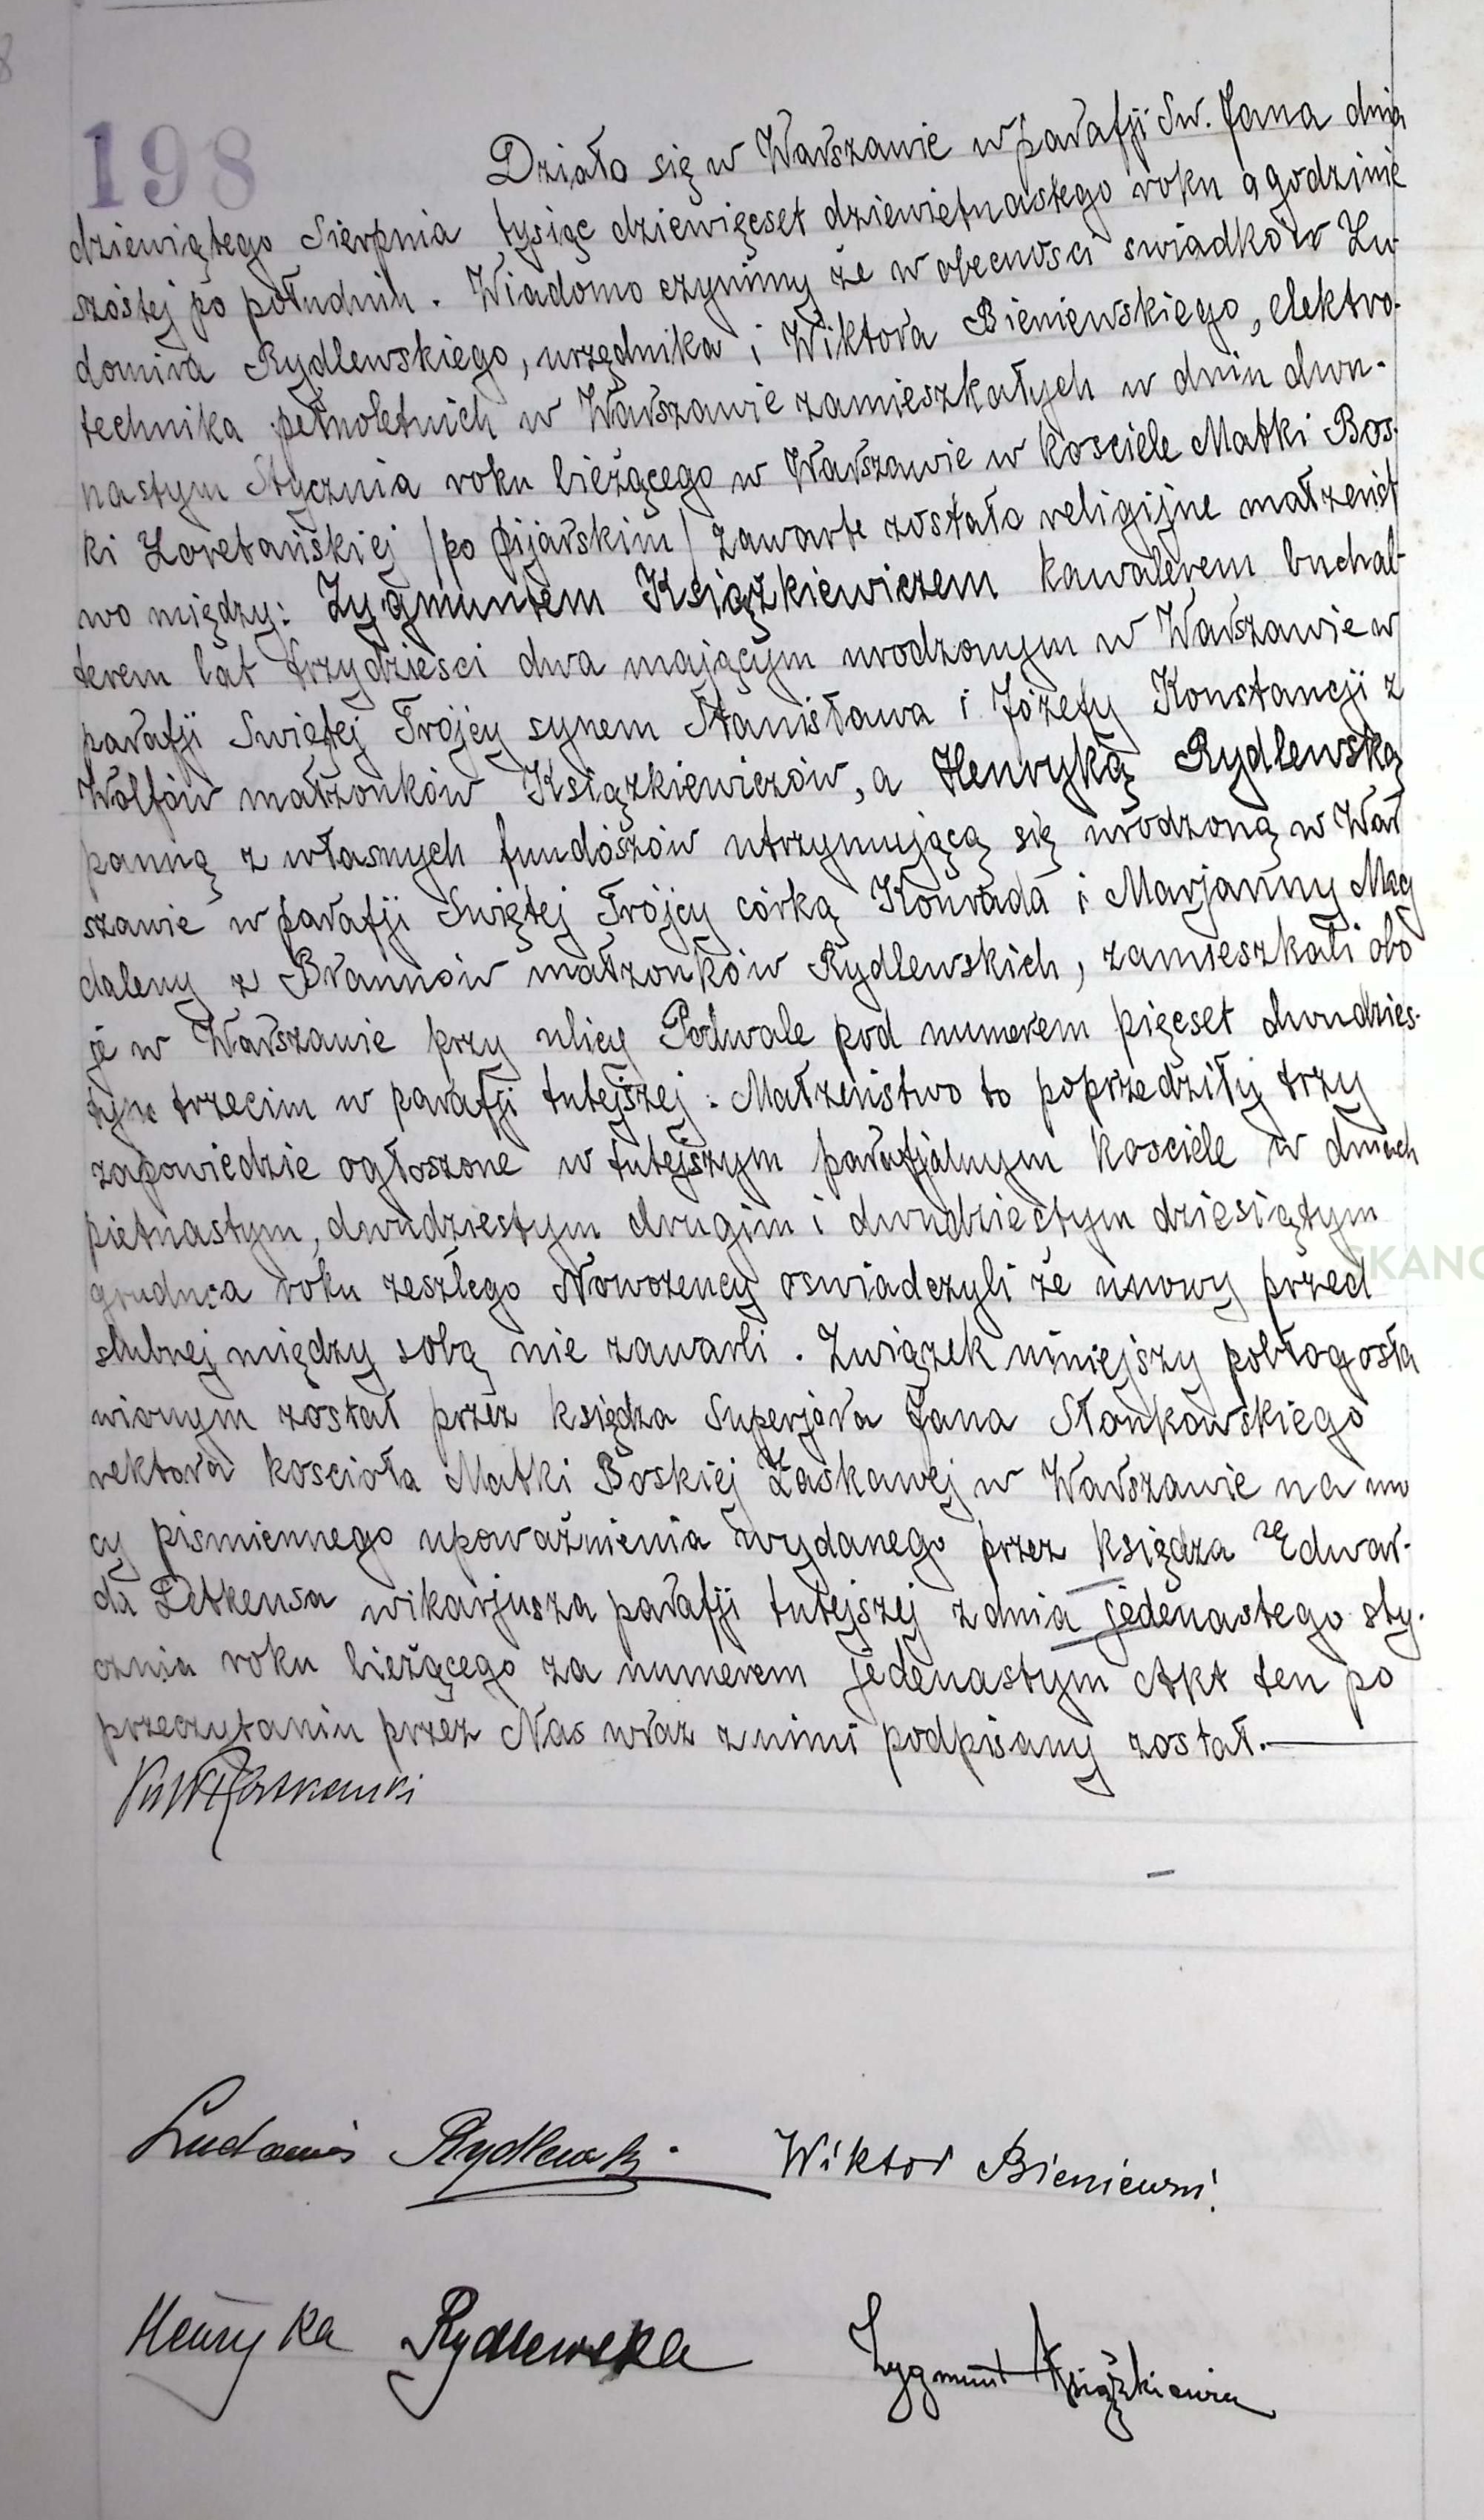 198
Działo się w Warszawie w parafji Sw. Jana dnia
dziewiątego Sierpnia tysiąc dziewięcset dziewietnastego roku o godzinie
szóstej po południu. Wiadomo czynimy że w obecnosci swiadków Lu
domira Rydlewskiego, urzędnika i Wiktora Bieniewskiego, elektro-
technika pełnoletnich w Warszawie zamieszkałych w dniu dwu-
nastym Stycznia roku bieżącego w Warszawie w kosciele Matki Bos-
ki Loretańskiej /po pijarskim/ zawarte zostało religijne małżeńst
wo między: Zygmuntem Książkiewiczem kawalerem buchal-
terem lat trzydziesci dwa mającym urodzonym w Warszawie w
parafji Swiętej Trójcy synem Stanisława i Józefy Konstancji z
Wolfów małżonków Książkiewiczów, a Henryką Rydlewską
panną z własnych funduszów utrzymującą się urodzoną w War
szawie w parafji Swiętej Trójcy córką Konrada i Marjanny Mag
daleny z Braunów małżonków Rydlewskich, zamieszkali obo
je w Warszawie przy ulicy Podwale pod numerem pięcset dwudzies-
tym trzecim w parafji tutejszej. Małżeństwo to poprzedziły trzy
zapowiedzie ogłoszone w tutejszym parafjalnym kosciele w dniach
piętnastym, dwudziestym drugim i dwudziestym dziesiątym
grudnia roku zeszłego Nowożeńcy oswiadczyli że umowy przed
slubnej między sobą nie zawarli. Związek niniejszy pobłogosła
wionym został przez księdza Superjora Jana Słonkowskiego
rektora koscioła Matki Boskiej Łaskawej w Warszawie na mo
cy pismiennego upoważnienia wydanego przez księdza Edwar-
da Detkensa wikarjusza parafji tutejszej z dnia jedenastego sty-
cznia roku bieżącego za numerem jedenastym Akt ten po
przeczytaniu przez Nas wraz z nimi podpisany został.
Ludomir Rydlewski. Wiktor Bieniewski.
Henryka Rydlewska Zygmunt Książkiewicz